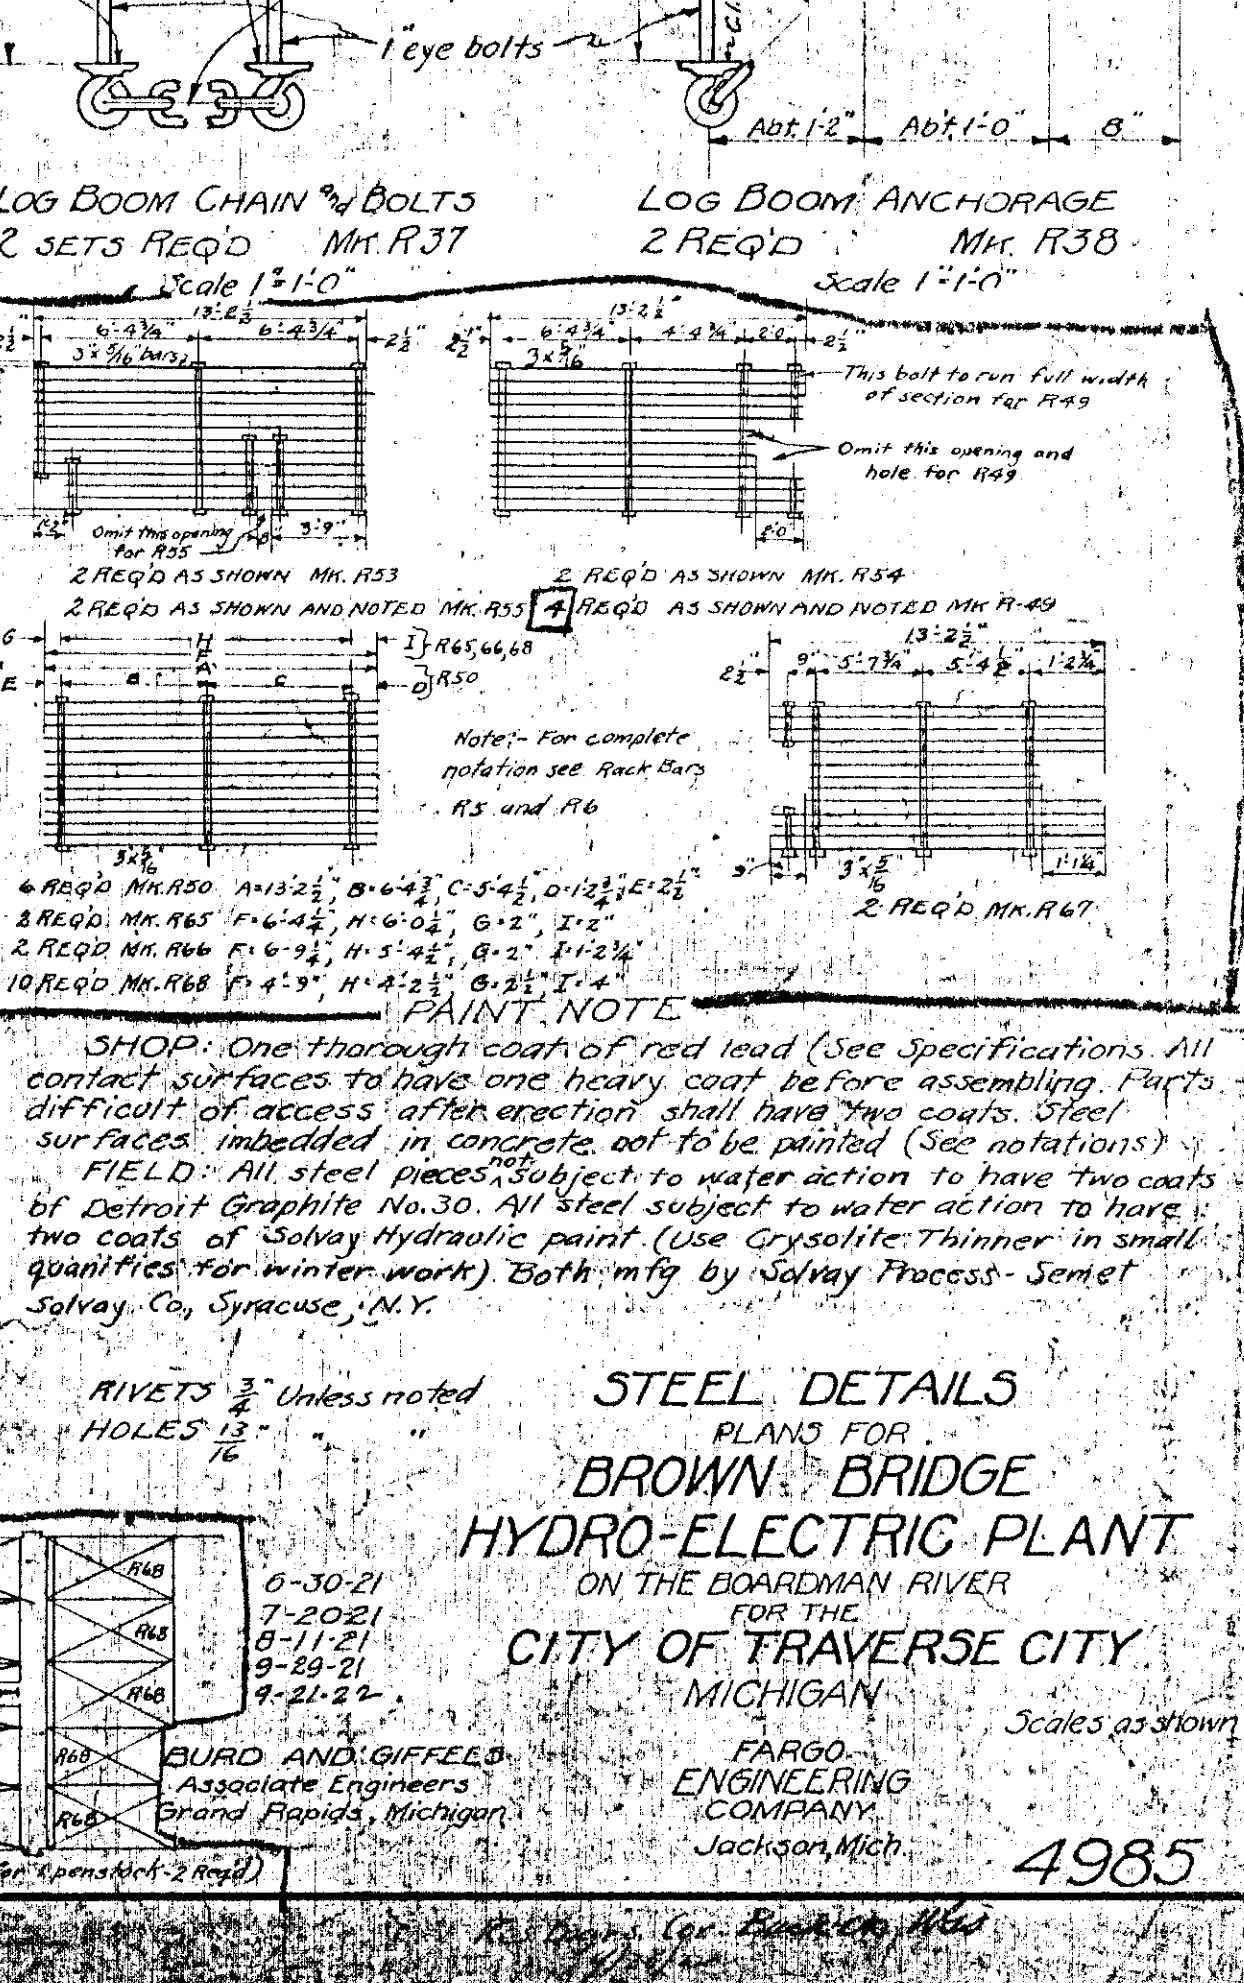 1" eye bolts
Abt. 1'-2" Abt. 1'-0" 8"
LOG BOOM CHAIN and BOLTS
2 SETS REQ'D MK. R37
Scale 1"=1'-0"
LOG BOOM ANCHORAGE
2 REQ'D MK. R38
Scale 1"=1'-0"
13'-2½"
6'-4¾" 6'-4¾" 2½"
3" x 5/16 bars
1'-2"
Omit this opening
for R55
8" 3'-9"
2 REQ'D AS SHOWN MK. R53
2 REQ'D AS SHOWN AND NOTED MK. R55
13'-2½"
2½" 6'-4¾" 4'-4¾" 2'-0 2½"
3 x 5/16"
This bolt to run full width
of section for R49
Omit this opening and
hole for R49
2'-0"
2 REQ'D AS SHOWN MK. R54
4 REQ'D AS SHOWN AND NOTED MK R-49
G H I } R65,66,68
F
A
E B C D } R50
3 x 5/16"
Note:- For complete
notation see Rack Bars
R5 and R6
13'-2½"
2½" 9" 5'-7¾" 5'-4½" 1'-2¾"
9" 3" x 5/16" 1'-1¼"
2 REQ'D MK. R67
6 REQ'D MK. R50 A=13'-2½", B=6'-4¾", C=5'-4½", D=1'-2¾", E=2½"
2 REQ'D. MK. R65 F=6'-4¼", H=6'-0¼", G=2", I=2"
2 REQ'D MK. R66 F=6'-9¼", H=5'-4½", G=2" I=1'-2¾"
10 REQ'D MK. R68 F=4'-9", H=4'-2½", G=2½", I=4"
PAINT NOTE
SHOP: One thorough coat of red lead (See Specifications. All
contact surfaces to have one heavy coat before assembling. Parts
difficult of access after erection shall have two coats. Steel
surfaces imbedded in concrete not to be painted (See notations)
FIELD: All steel pieces not subject to water action to have two coats
of Detroit Graphite No.30. All steel subject to water action to have
two coats of Solvay Hydraulic paint (Use Crysolite Thinner in small
quanities for winter work) Both mfg by Solvay Process - Semet
Solvay Co., Syracuse, N.Y.
RIVETS ¾" Unless noted
HOLES 13/16" " "
STEEL DETAILS
PLANS FOR
BROWN BRIDGE
HYDRO-ELECTRIC PLANT
ON THE BOARDMAN RIVER
FOR THE
CITY OF TRAVERSE CITY
MICHIGAN
Scales as shown
FARGO
ENGINEERING
COMPANY
Jackson, Mich.
4985
6-30-21
7-20-21
8-11-21
9-29-21
9-21-22
BURD AND GIFFELS
Associate Engineers
Grand Rapids, Michigan
R68
R68
R68
R68
R68
penstock-2 Req'd)